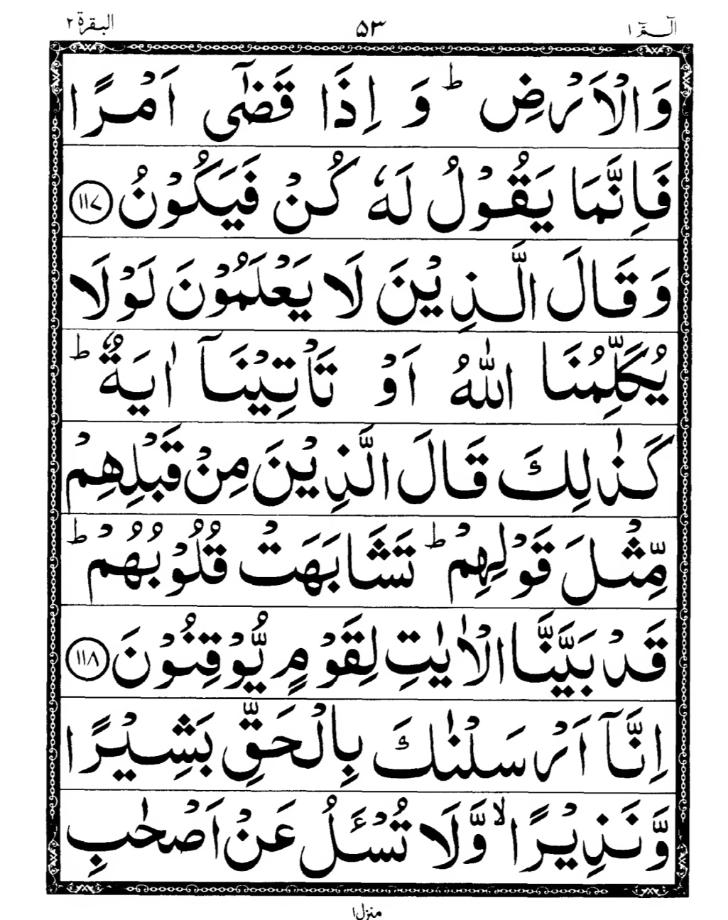 البقرة ٢ ٥٣ الٓمّٓ ١
وَالْاَرْضِ ؕ وَ اِذَا قَضٰۤى اَمْرًا
فَاِنَّمَا يَقُوْلُ لَهٗ كُنْ فَيَكُوْنُ ﴿۱۱۷﴾
وَقَالَ الَّذِيْنَ لَا يَعْلَمُوْنَ لَوْلَا
يُكَلِّمُنَا اللّٰهُ اَوْ تَاْتِيْنَاۤ اٰيَةٌ ؕ
كَذٰلِكَ قَالَ الَّذِيْنَ مِنْ قَبْلِهِمْ
مِّثْلَ قَوْلِهِمْ ؕ تَشَابَهَتْ قُلُوْبُهُمْ ؕ
قَدْ بَيَّنَّا الْاٰيٰتِ لِقَوْمٍ يُّوْقِنُوْنَ ﴿۱۱۸﴾
اِنَّاۤ اَرْسَلْنٰكَ بِالْحَقِّ بَشِيْرًا
وَّنَذِيْرًا ۙ وَّلَا تُسْـَٔلُ عَنْ اَصْحٰبِ
منزل ١